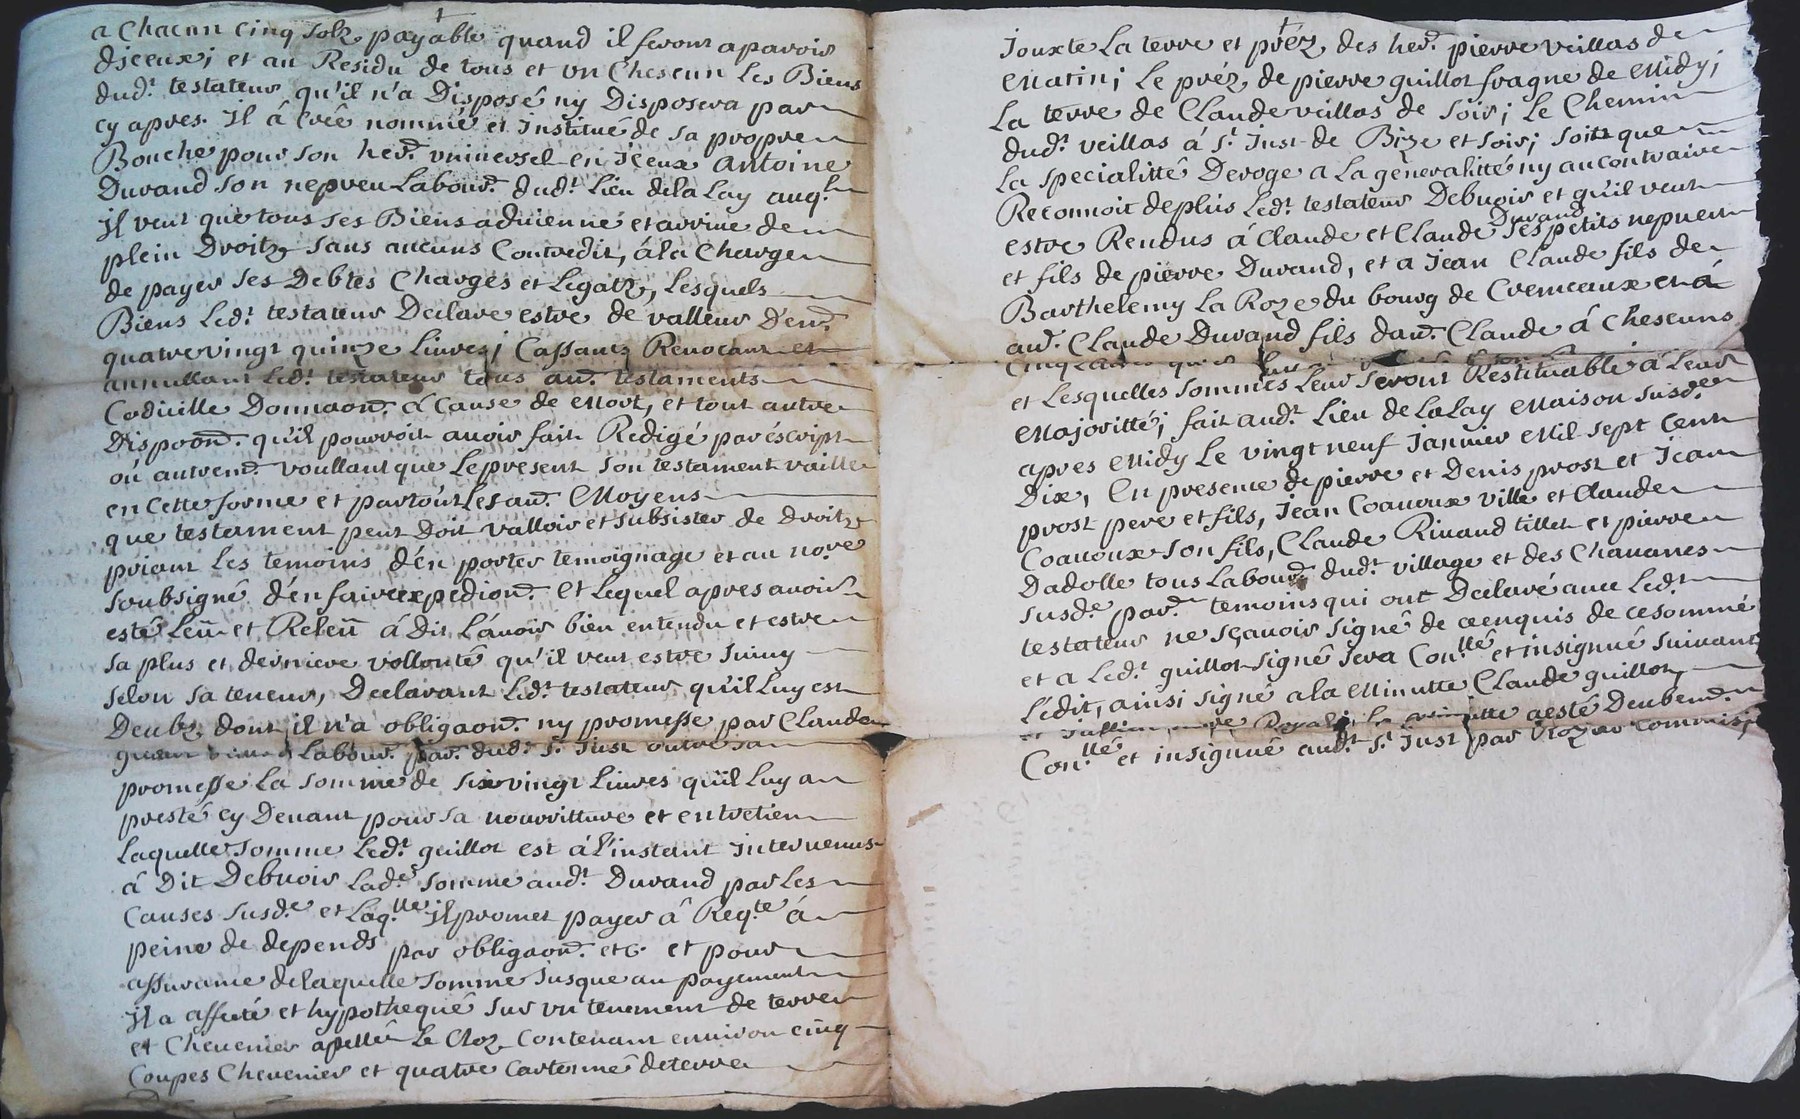 a Chacun cinq solz payable quand il seront aparoir
diceux; et au Residu de tous et un Chescun les Biens
dud.t testateur qu'il n'a Disposé ny Disposera par
cy apres. Il â Créé nommé et Institué de sa propre
Bouche pour son her.r universel en Iceux Antoine
Durand son nepveu Labour.r dud.t Lieu de la Lay auq.l
Il veut que tous ses Biens advienne et arrive de
plein Droitz sans aucuns Contredit, â la Charge
de payer ses Debtes Charges et Legatz, Lesquels
Biens Led.t testateur Declare estre de valleur D'en.
quatrevingt quinze Livres; Cassant Revocant et
annullant Led.t testateur tous au. testaments
Codicille Donnaon. â Cause de Mort, et tout autre
Dispoon. qu'il pourroit avoir fait Redigé par éscript
oû autrem. voullant que Le present son testament vaille
en Cette forme et partout les au. Moyens
que testament peut Doit valloir et subsister de Droitz
priant Les temoins d'én porter temoignage et au no.re
soubsigné d'én faire expedion. Et Lequel apres avoir
esté Leu et Releu â Dit L'avoir bien entendu et estre
sa plus et derniere vollonté qu'il veut estre suivy
selon sa teneur, Declarant Led.t testateur qu'il Luy est
Deubz dont il n'a obligaon. ny promesse par Claude
Labour. par. dud.t S.t Just outre sa
promesse La somme de six vingt Livres qu'il Luy a
presté cy Devant pour sa nourritture et entretien
Laquelle somme Led.t guillot est â l'instant intervenus
â Dit Debvoir Lad.e somme aud.t Durand par Les
Causes susd.e et Laq.lle il promet payer â Req.te â
peine de depends par obligaon. etc. et pour
assurance de laquelle somme jusque au payement
Il a affecté et hypothequé sur un tenement de terre
et Chevenier apellé Le Cloz Contenant environ cinq
Coupes Chevenier et quatre Cartonné de terre
Jouxte La terre et préz des her.r pierre veillas de
Matin; Le préz de pierre guillot fragne de Midy;
La terre de Claude veillas de soir; Le Chemin
dud.t veillas â S.t Just de Bize et soir; soitz que
La specialitté Deroge a La generalitté ny au contraire
Reconnoit deplus Led.t testateur Debvoir et qu'il veut
estre Rendus â Claude et Claude Durand ses petits nepveu
et fils de pierre Durand, et a Jean Claude fils de
Barthelemy La Roze du bourg de Cremeaux et â
au. Claude Durand fils d'au. Claude â Chescuns
Cinq
et Lesquelles sommes Leur seront Restituable â Leur
Majoritté; fait aud.t Lieu de La Lay Maison susd.e
apres Midy Le vingt neuf Janvier Mil sept Cent
Dix, En presence de pierre et Denis prost et Jean
prost pere et fils, Jean Coavoux ville et Claude
Coavoux son fils, Claude Rivaud tillet et pierre
Dadolle tous Labour. dud.t village et des Chavanes
susd.e par. temoins qui ont Declaré avec Led.t
testateur ne sçavoir signé de ce enquis de ce sommé
et a Led.t guillot signé sera Con.llé et insignué suivant
L'édit, ainsi signé a la Minutte Claude guillot
et Jullien no.re Royal; La minutte a esté Deubem.
Con.llé et insignué aud.t S.t Just par Commis;